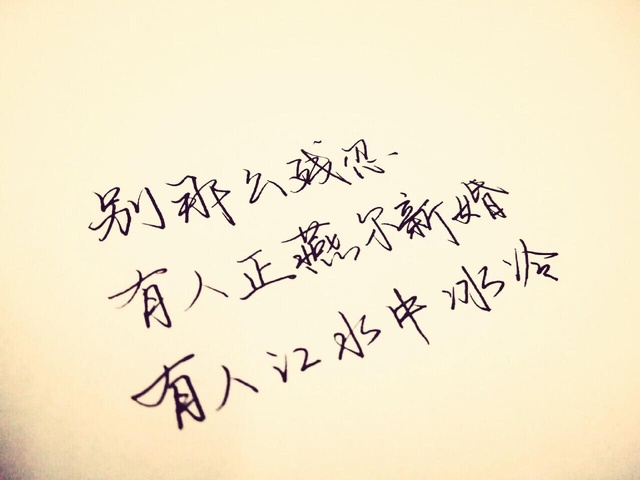 别那么残忍
有人正燕尔新婚
有人江水中冰冷